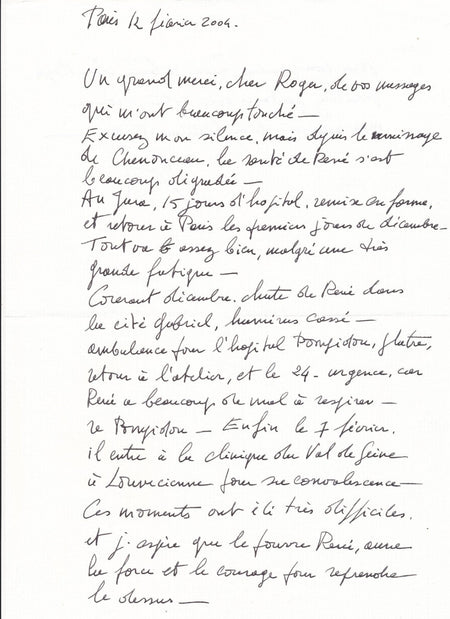 Paris 12 février 2004.
Un grand merci, cher Roger, de vos messages
qui m'ont beaucoup touché —
Excusez mon silence, mais depuis le vernissage
de Chenonceau, la santé de René s'est
beaucoup dégradée —
Au Jura, 15 jours d'hopital, remise en forme,
et retour à Paris les premiers jours de décembre —
Tout va assez bien, malgré une très
grande fatigue —
Courant décembre. chute de René dans
la cité Gabriel, humérus cassé —
ambulance pour l'hopital Pompidou, plâtre,
retour à l'atelier, et le 24 - urgence, car
René a beaucoup de mal à respirer —
re Pompidou — Enfin le 7 février.
il entre à la clinique du Val de Seine
à Louvecienne pour sa convalescence —
Ces moments ont été très difficiles.
et j'espère que le pauvre René, aura
la force et le courage pour reprendre
le dessus —